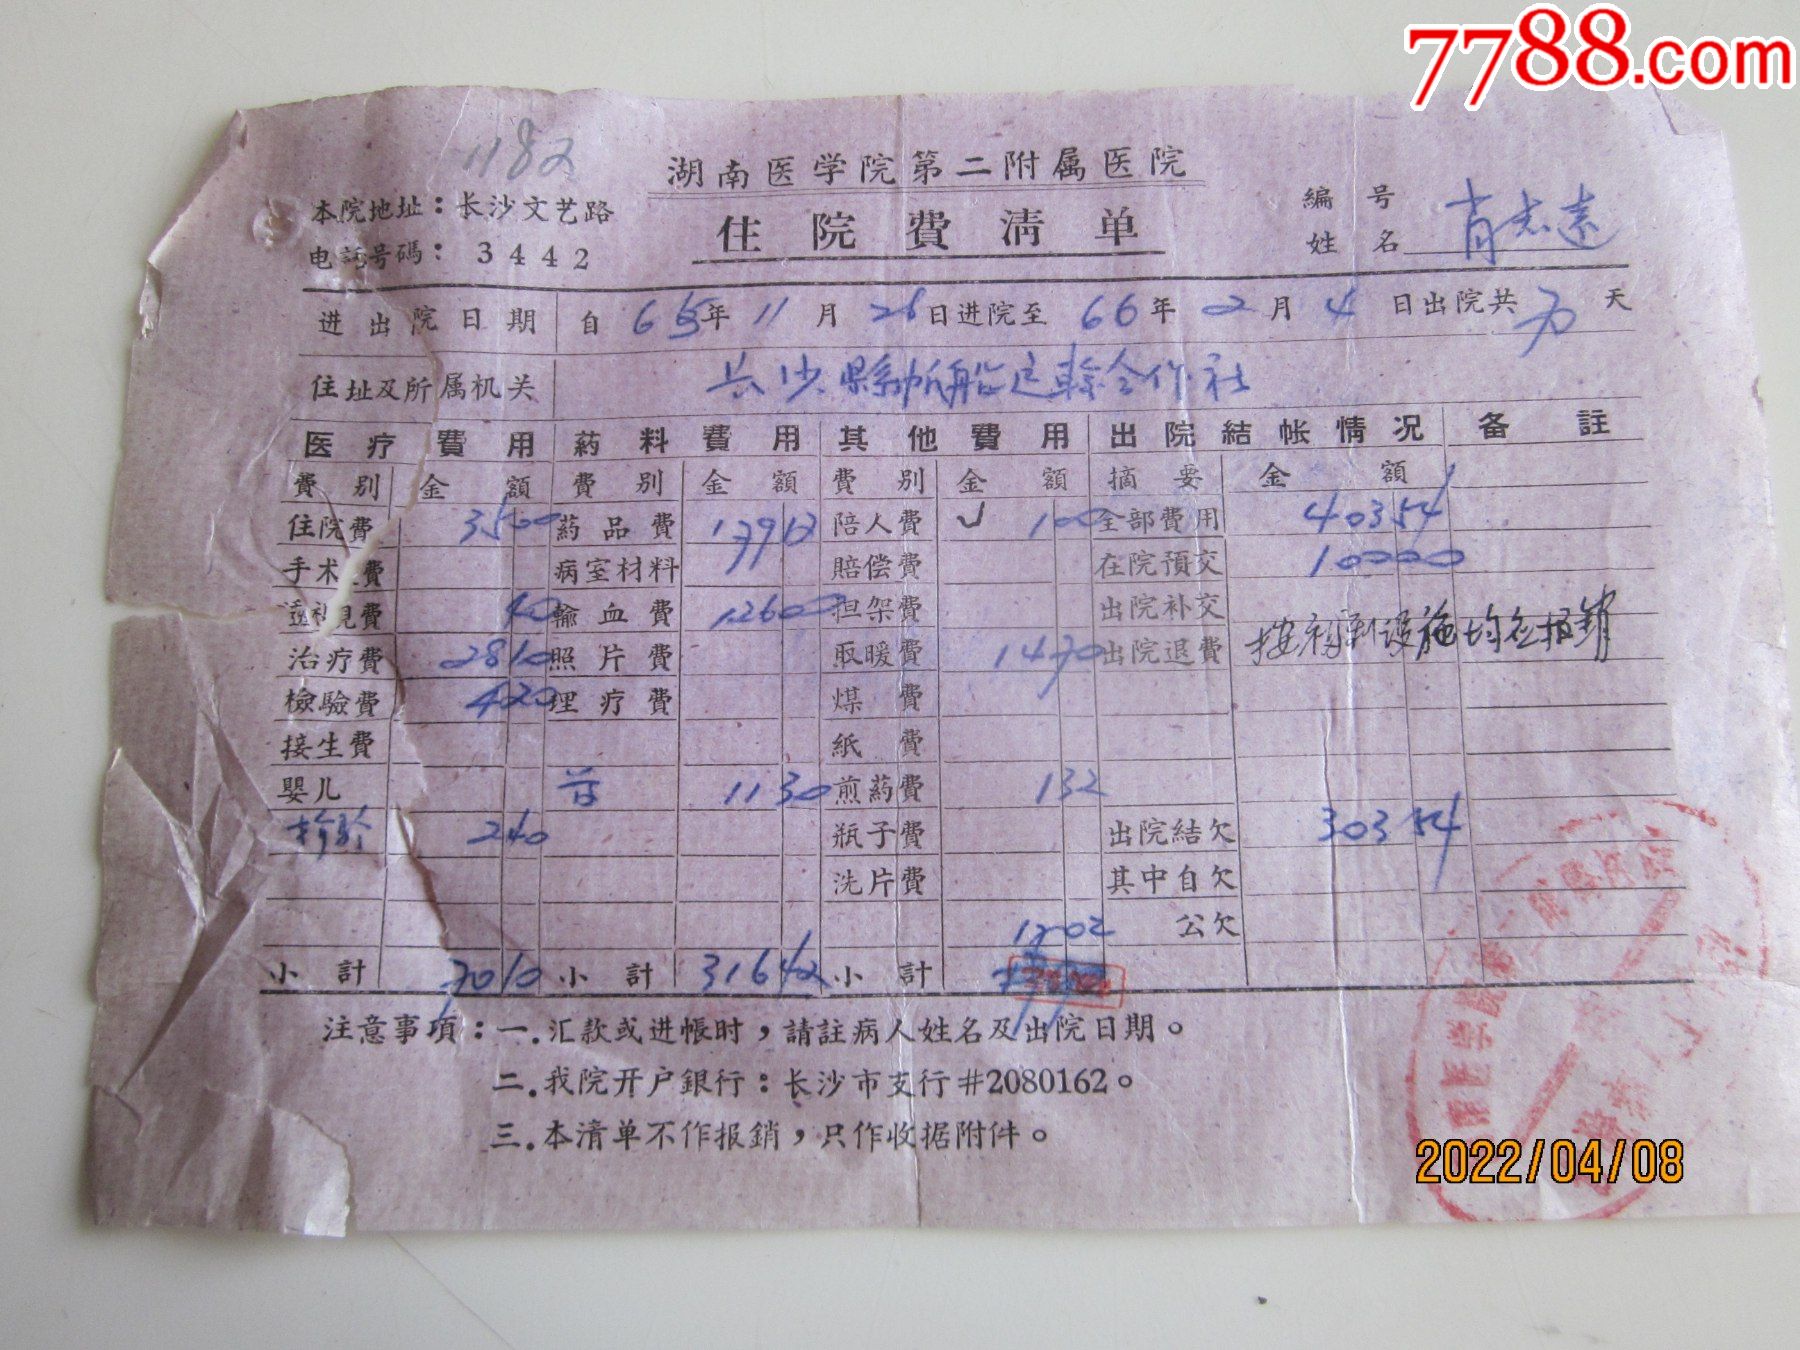 7788.com
1182
湖南医学院第二附属医院
本院地址：长沙文艺路
住院費清单
編号
电話号碼：3442
姓名 肖志远
进出院日期 自 65年 11月 26日进院至 66年 2月 4日出院共 天
住址及所属机关 长沙縣帆船运輸合作社
医疗費用 葯料費用 其他費用 出院結帐情况 备註
費别 金額 費别 金額 費别 金額 摘要 金額
住院費 3500 葯品費 17912 陪人費 100 全部費用 40354
手术費 病室材料 賠偿費 在院預交 10000
透視費 40 輸血費 12600 担架費 出院补交
治疗費 2810 照片費 取暖費 1470 出院退費
檢驗費 420 理疗費 煤費
接生費 紙費
嬰儿 1130 煎葯費 132
检验 240 瓶子費 出院結欠 30354
洗片費 其中自欠
1702 公欠
小計 7010 小計 31642 小計
注意事項：一.汇款或进帳时，請註病人姓名及出院日期。
二.我院开户銀行：长沙市支行#2080162。
三.本清单不作报銷，只作收据附件。
2022/04/08